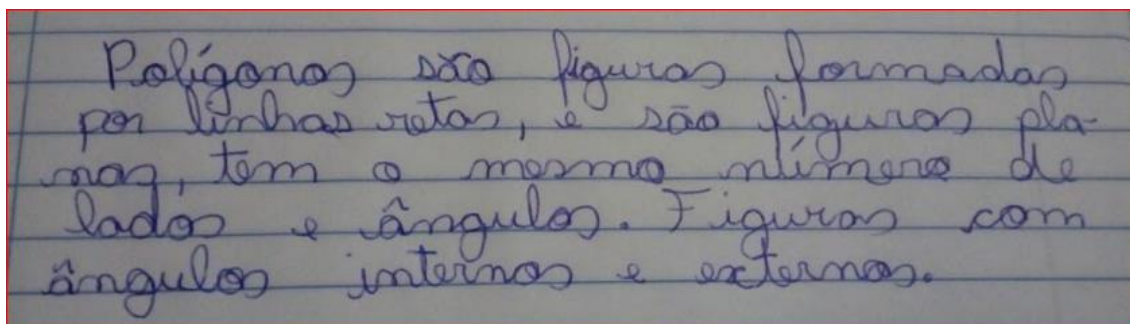 Polígonos são figuras formadas
por linhas retas, e são figuras pla-
nas, tem o mesmo número de
lados e ângulos. Figuras com
ângulos internos e externos.